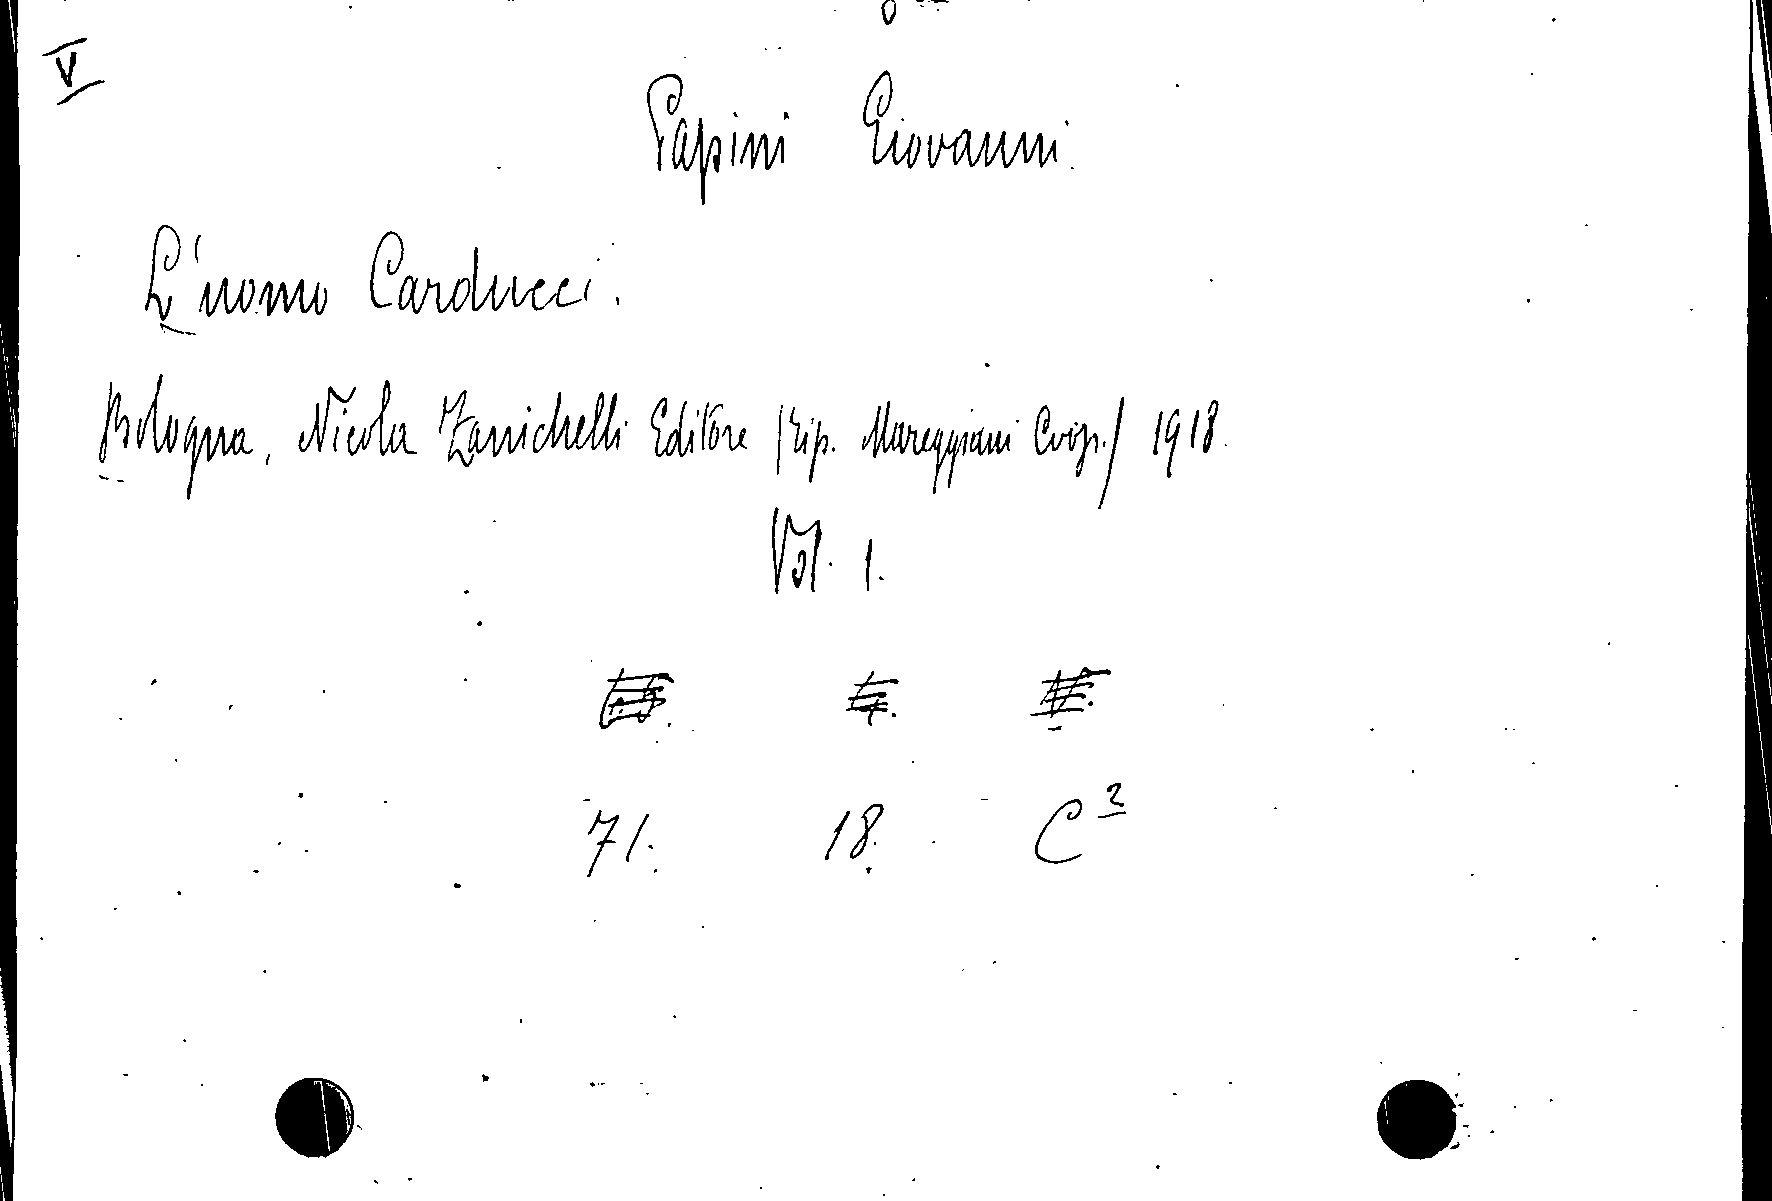 V
Papini Giovanni.
L'uomo Carducci.
Bologna, Nicola Zanichelli Editore (Tip. Mareggiani Coop.) 1918.
Vol. 1.
71. 18. C²